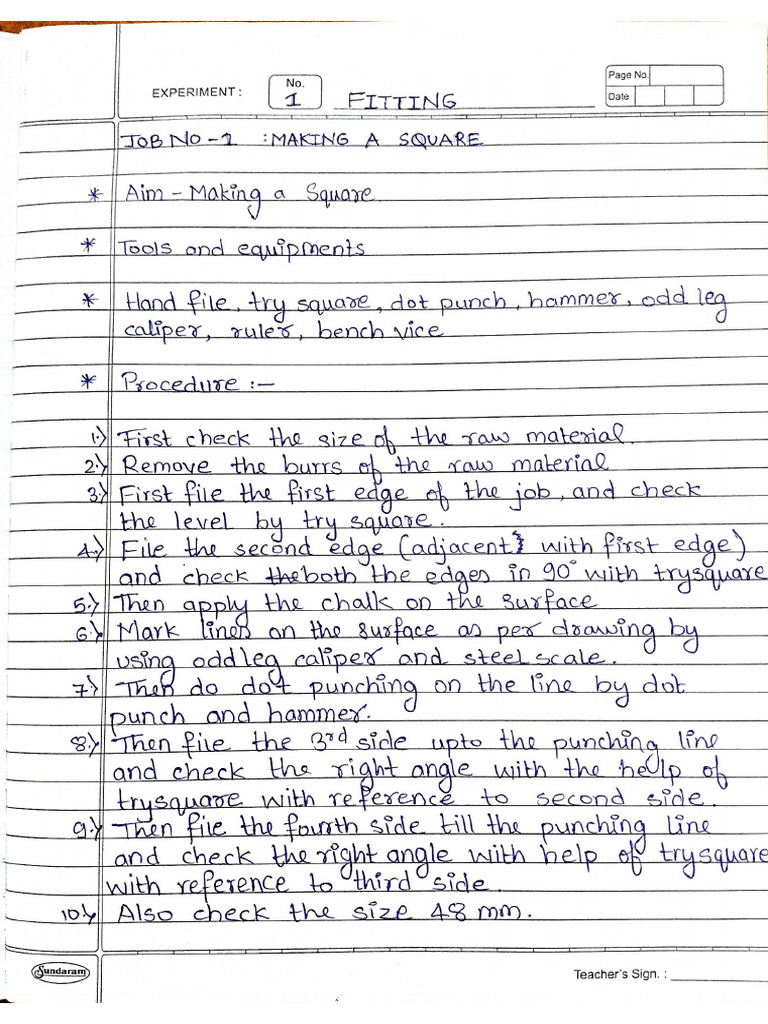 Page No.
EXPERIMENT : No. 1 FITTING
Date
JOB NO-1 :MAKING A SQUARE
* Aim - Making a Square
* Tools and equipments
* Hand file, try square, dot punch, hammer, odd leg
caliper, ruler, bench vice
* Procedure :-
1.) First check the size of the raw material.
2.) Remove the burrs of the raw material
3.) First file the first edge of the job, and check
the level by try square.
4.) File the second edge (adjacent with first edge)
and check the both the edges in 90° with trysquare
5.) Then apply the chalk on the surface
6.) Mark lines on the surface as per drawing by
using odd leg caliper and steel scale.
7.) Then do dot punching on the line by dot
punch and hammer.
8.) Then file the 3rd side upto the punching line
and check the right angle with the help of
trysquare with reference to second side.
9.) Then file the fourth side till the punching line
and check the right angle with help of trysquare
with reference to third side.
10.) Also check the size 48 mm.
Sundaram
Teacher's Sign. :